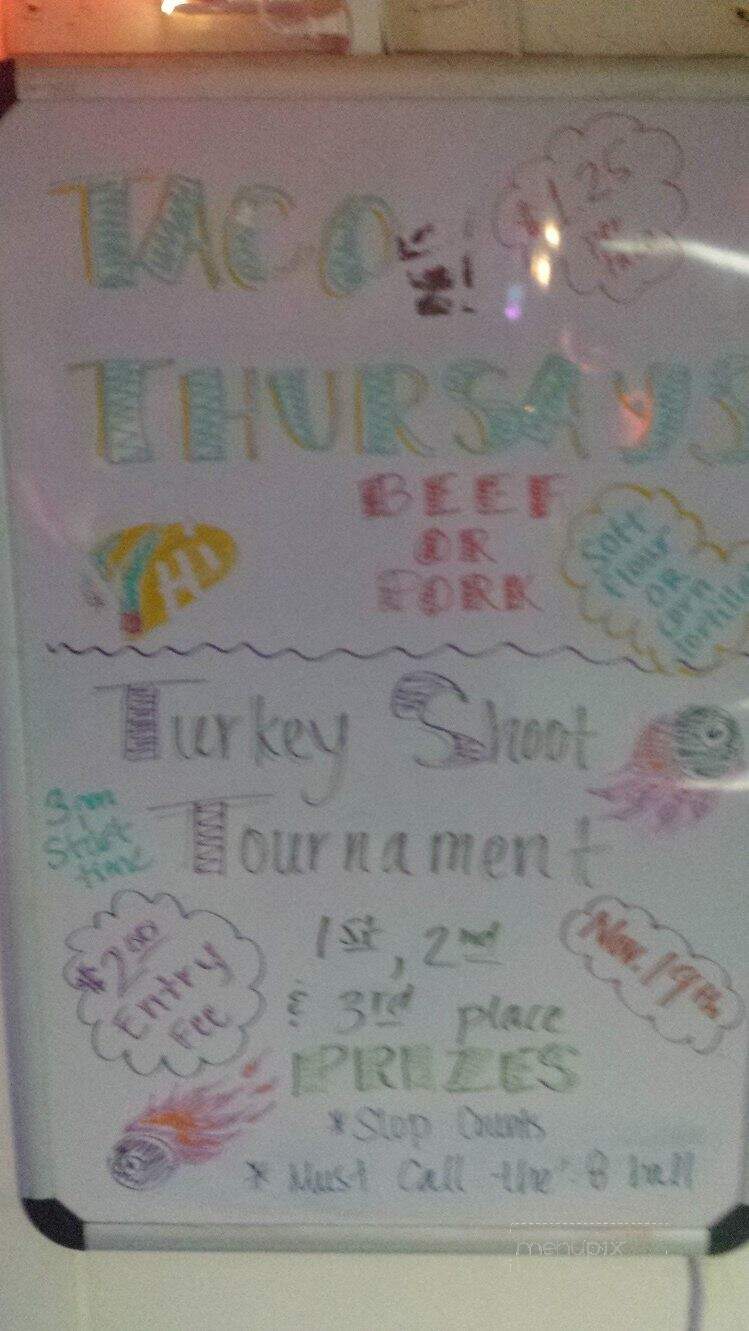 TACO
$1.25
THURSAYS
BEEF
OR
PORK
Hi
Soft
Flour
OR
Corn
Tortilla
Turkey Shoot
Tournament
3pm
Start
time
$2.00
Entry
Fee
1st, 2nd
& 3rd place
PRIZES
Nov. 19th
*Slop Counts
* Must Call the 8 ball
menupix